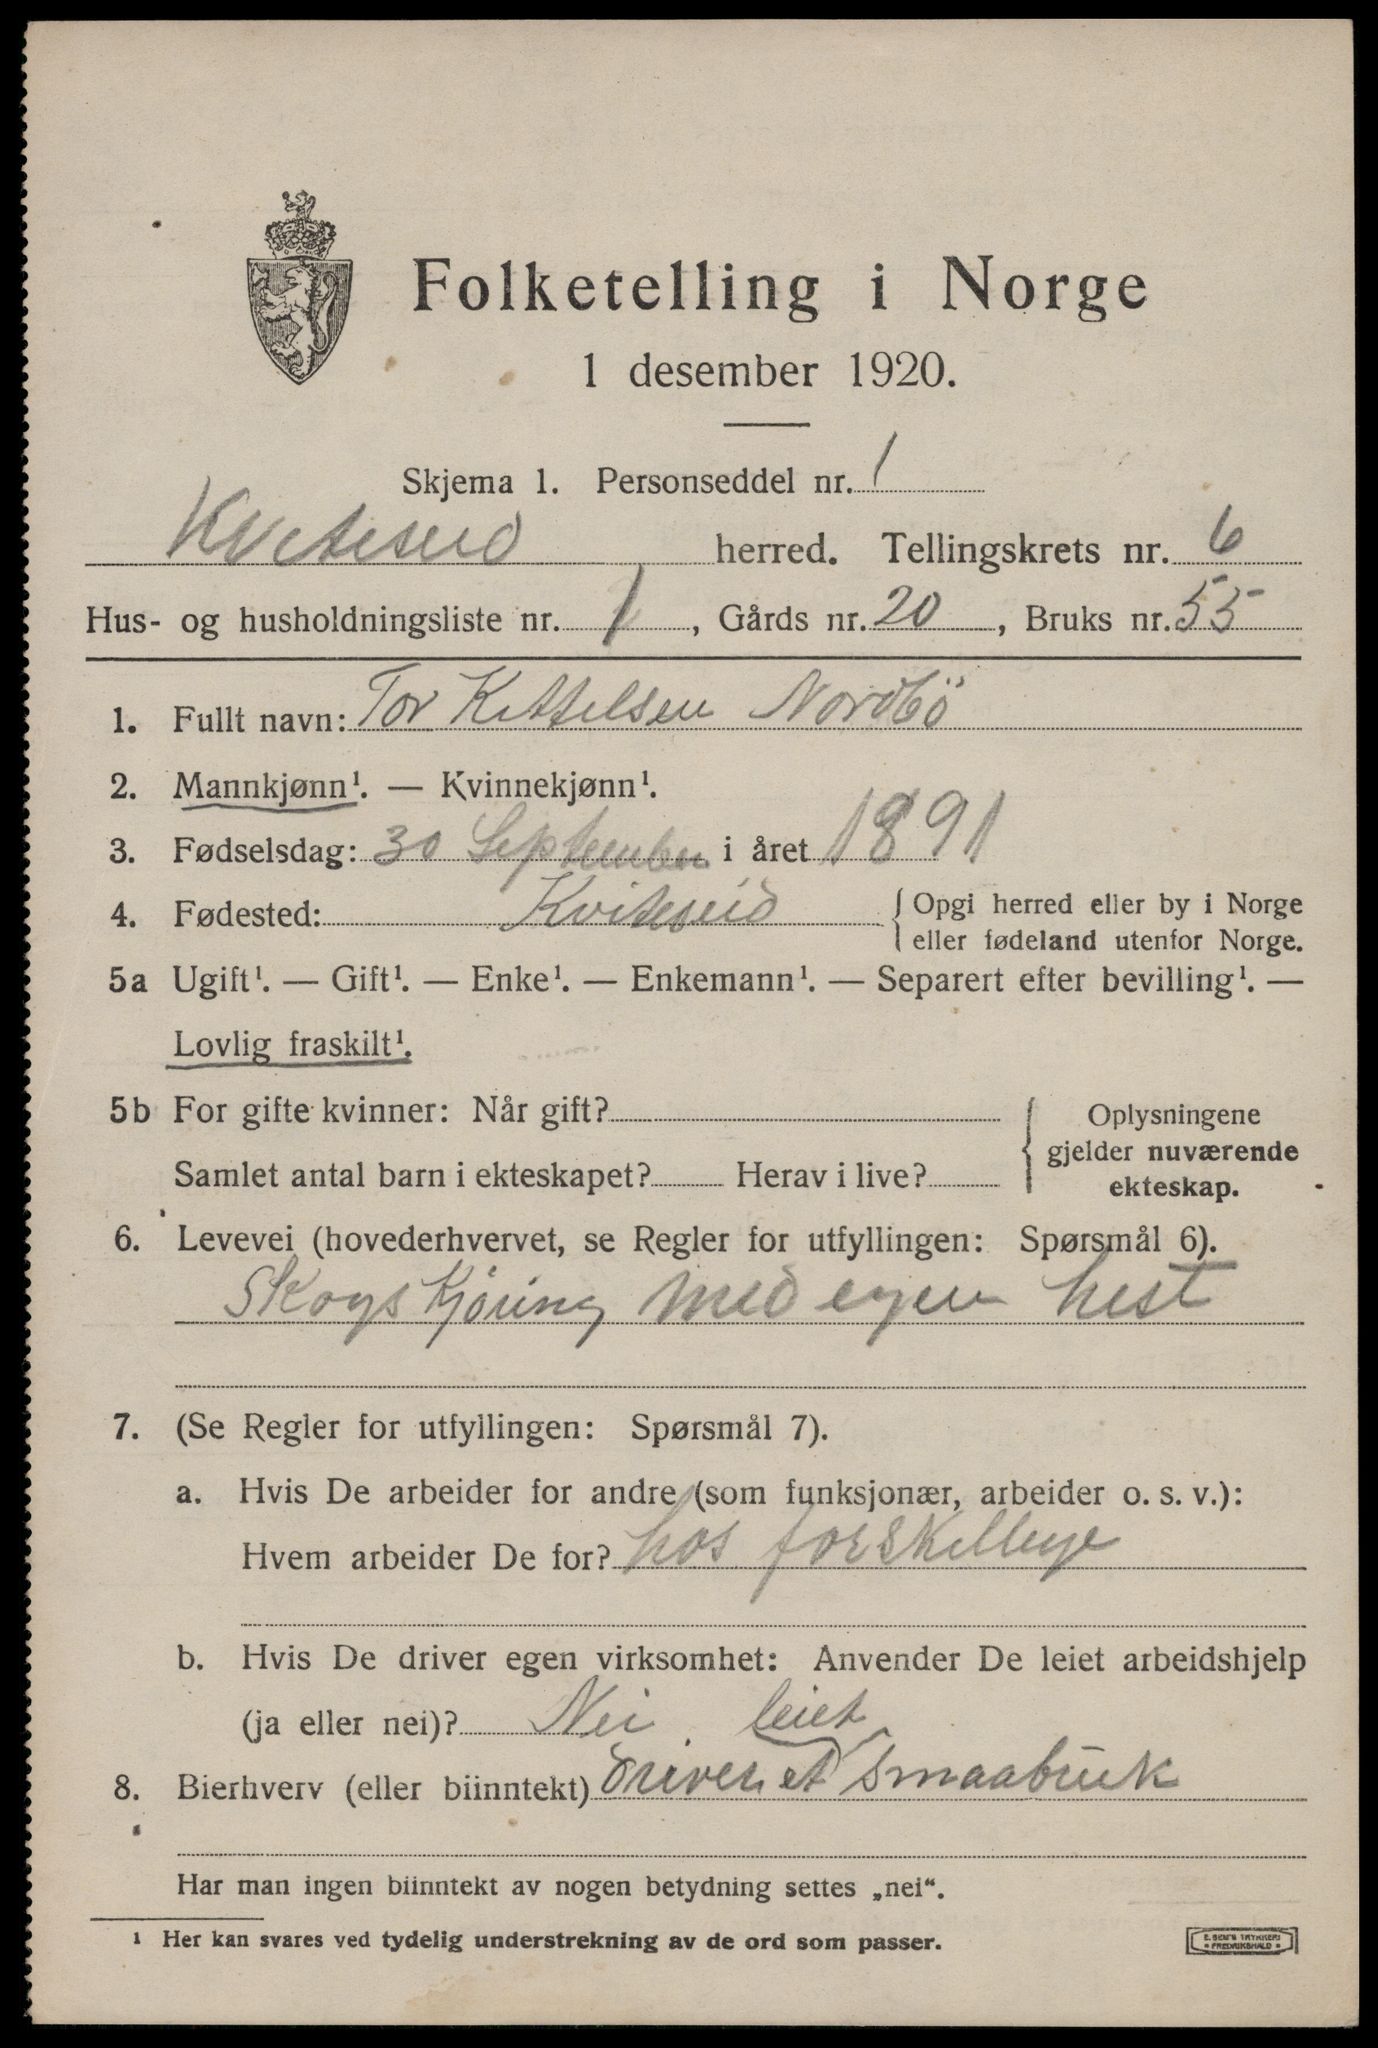 Folketelling i Norge
1 desember 1920.
Skjema 1. Personseddel nr. 1
Kviteseid herred. Tellingskrets nr. 6
Hus- og husholdningsliste nr. 1, Gårds nr. 20, Bruks nr. 55
1. Fullt navn: Tor Kittelsen Nordbö
2. Mannkjønn¹. — Kvinnekjønn¹.
3. Fødselsdag: 30 September i året 1891
4. Fødested: Kviteseid { Opgi herred eller by i Norge
eller fødeland utenfor Norge.
5a Ugift¹. — Gift¹. — Enke¹. — Enkemann¹. — Separert efter bevilling¹. —
Lovlig fraskilt¹.
5b For gifte kvinner: Når gift?
Samlet antal barn i ekteskapet? Herav i live?
{ Oplysningene
gjelder nuværende
ekteskap.
6. Levevei (hovederhvervet, se Regler for utfyllingen: Spørsmål 6).
Skogskjöring med egen hest
7. (Se Regler for utfyllingen: Spørsmål 7).
a. Hvis De arbeider for andre (som funksjonær, arbeider o. s. v.):
Hvem arbeider De for? hos forskellige
b. Hvis De driver egen virksomhet: Anvender De leiet arbeidshjelp
(ja eller nei)? Nei leiet
8. Bierhverv (eller biinntekt) driver et Smaabruk
Har man ingen biinntekt av nogen betydning settes „nei“.
¹ Her kan svares ved tydelig understrekning av de ord som passer.
E. SEM'S TRYKKERI
FREDRIKSHALD